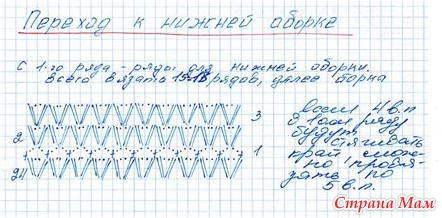 Переход к нижней оборке
с 1-го ряда - ряды для нижней оборки.
всего вязать 15-18 рядов, далее борка
3
2
1
24
если 4 в.п
в 1-ом ряду
будут
стягивать
край, можно
но провя-
зать по
5 в.п.
Страна Мам